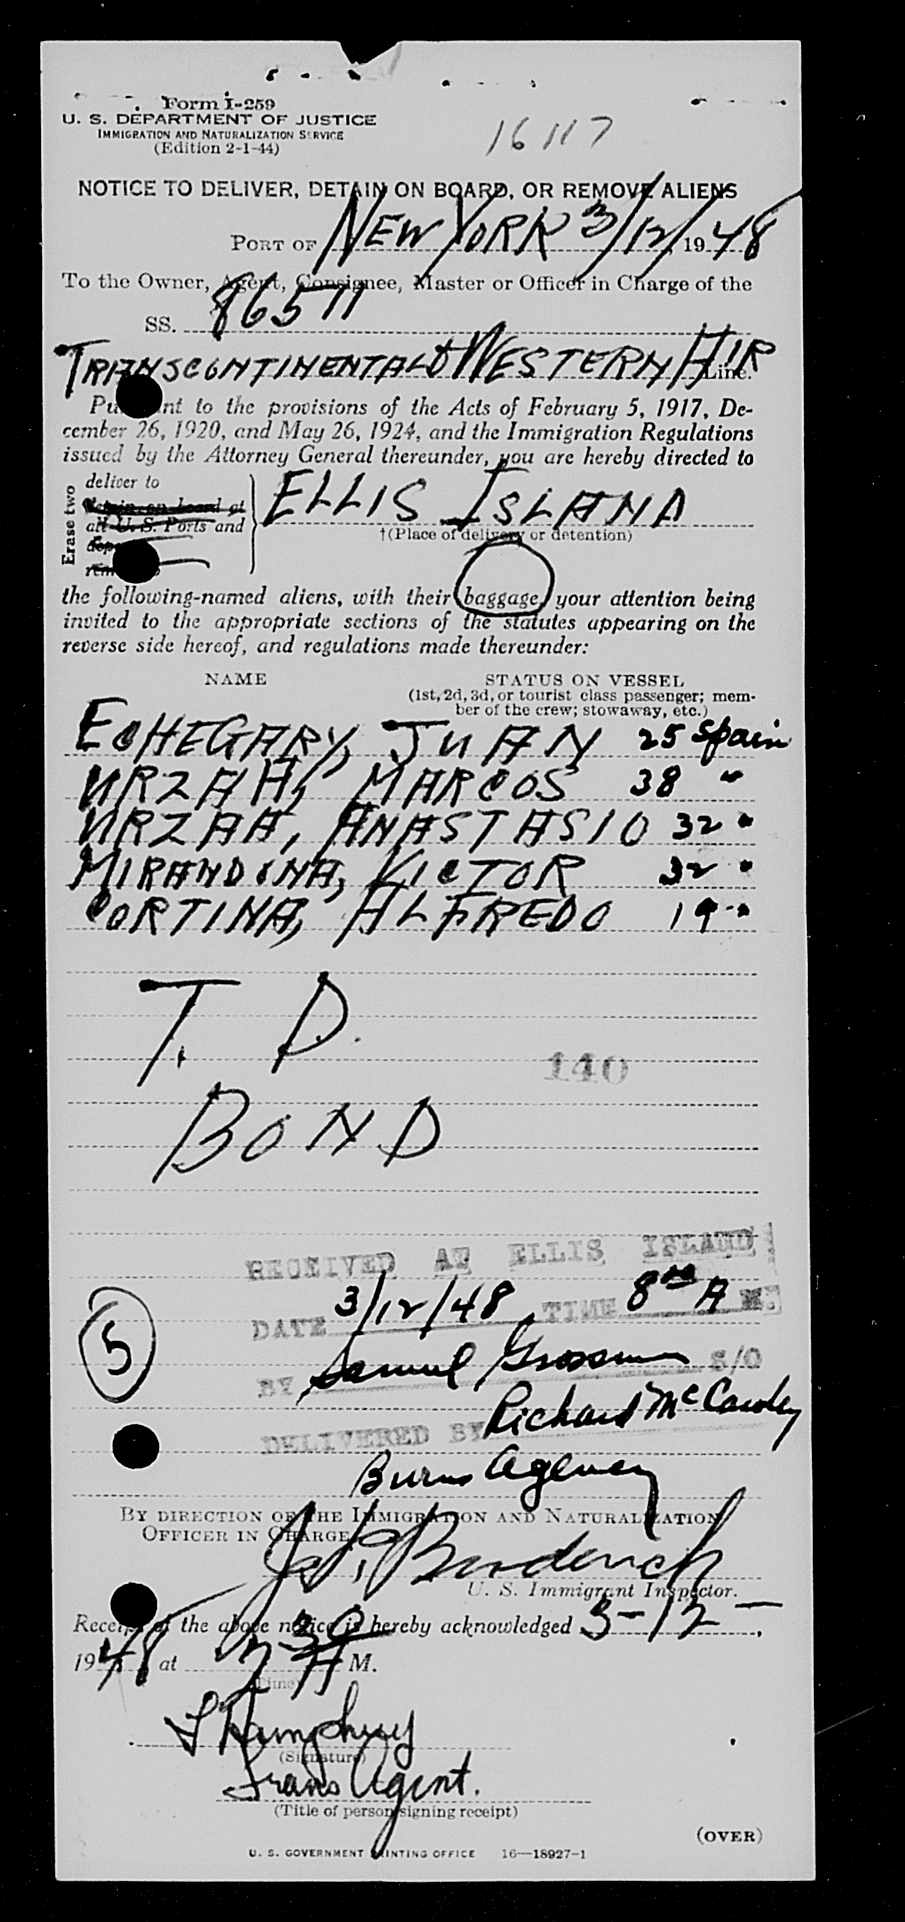 16117
Form I-259
U. S. DEPARTMENT OF JUSTICE
IMMIGRATION AND NATURALIZATION SERVICE
(Edition 2-1-44)
NOTICE TO DELIVER, DETAIN ON BOARD, OR REMOVE ALIENS
PORT OF NEW YORK 3/12/, 1948
To the Owner, Agent, Consignee, Master or Officer in Charge of the
SS. 86511
TRANSCONTINENTAL & WESTERN AIR Line.
Pursuant to the provisions of the Acts of February 5, 1917, De-
cember 26, 1920, and May 26, 1924, and the Immigration Regulations
issued by the Attorney General thereunder, you are hereby directed to
Erase two
deliver to
detain on board at
all U. S. Ports and
ELLIS ISLAND
†(Place of delivery or detention)
the following-named aliens, with their baggage, your attention being
invited to the appropriate sections of the statutes appearing on the
reverse side hereof, and regulations made thereunder:
NAME STATUS ON VESSEL
(1st, 2d, 3d, or tourist class passenger; mem-
ber of the crew; stowaway, etc.)
ECHEGARY, JUAN 25 Spain
URZAA, MARCOS 38 "
URZAA, ANASTASIO 32 "
MIRANDONA, VICTOR 32 "
CORTINA, ALFREDO 19 "
T. D.
140
BOND
RECEIVED AT ELLIS ISLAND
DATE 3/12/48 TIME 8 00 A M
5
BY Samuel Grossman S/O
DELIVERED BY Richard McCawley
Burns Agency
BY DIRECTION OF THE IMMIGRATION AND NATURALIZATION
OFFICER IN CHARGE
U. S. Immigrant Inspector.
Receipt of the above notice is hereby acknowledged 3-12-,
1948 at 7 30 A M.
(Time)
L Humphrey
(Signature)
Trans Agent.
(Title of person signing receipt)
(OVER)
U. S. GOVERNMENT PRINTING OFFICE 16—18927-1